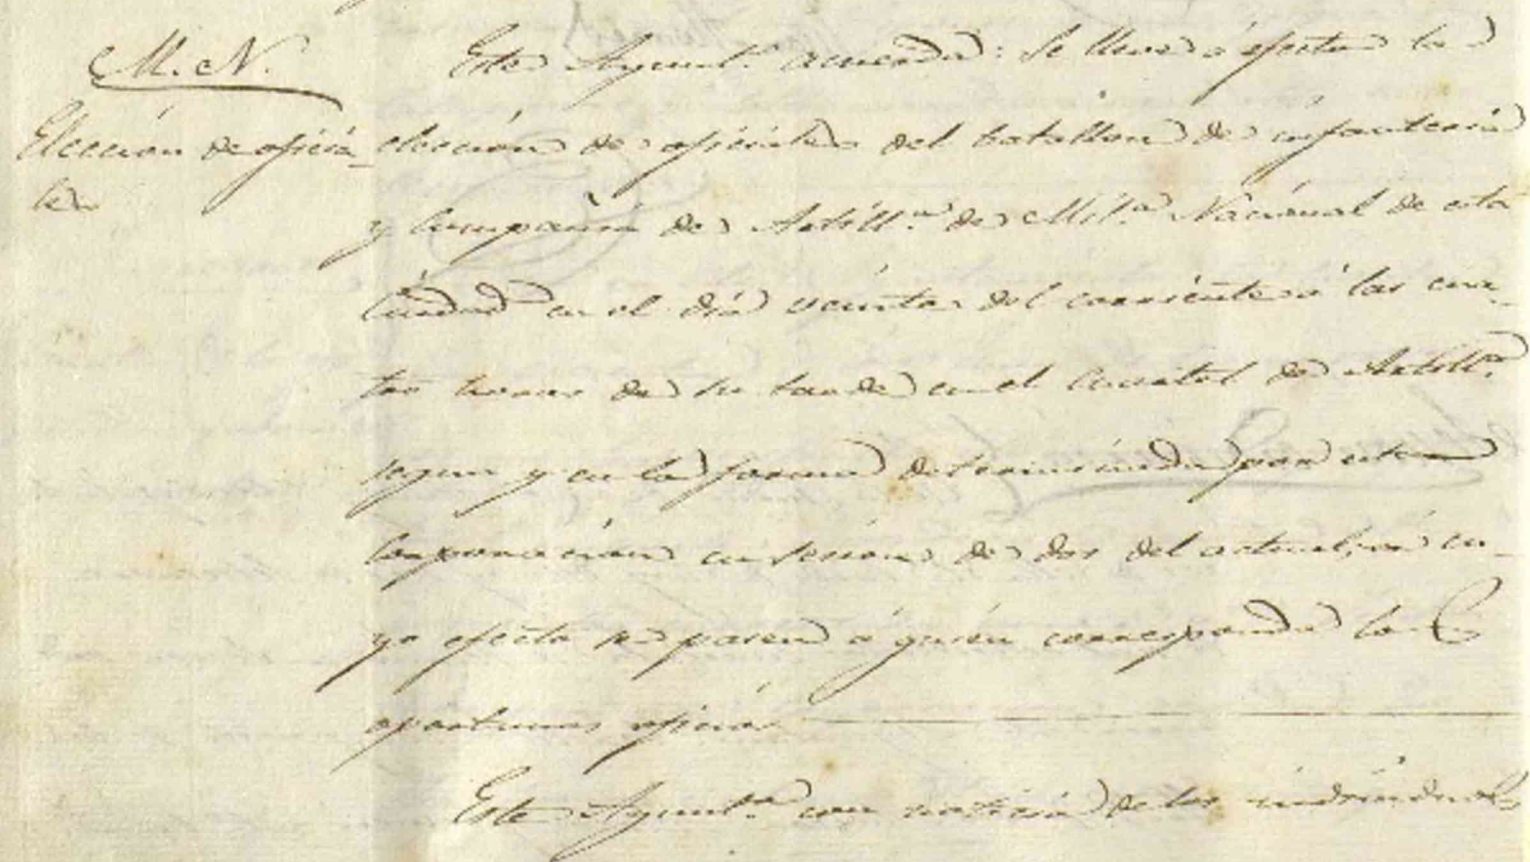 M. N.
Elección de oficia-
les
Este Ayunt.º acuerda: Se lleve á efecto la
elección de oficiales del batallon de infanteria
y Compañia de Artill.ª de Mil.ª Nacional de esta
Ciudad en el dia veinte del corriente á las cua-
tro horas de su tarde en el Cuartel de Artill.ª
segun y en la forma determinada por esta
Corporacion en sesion de dos del actual, á cu-
yo efecto se pasen á quien corresponda los
oportunos oficios.
Este Ayunt.º con noticia de los individuos